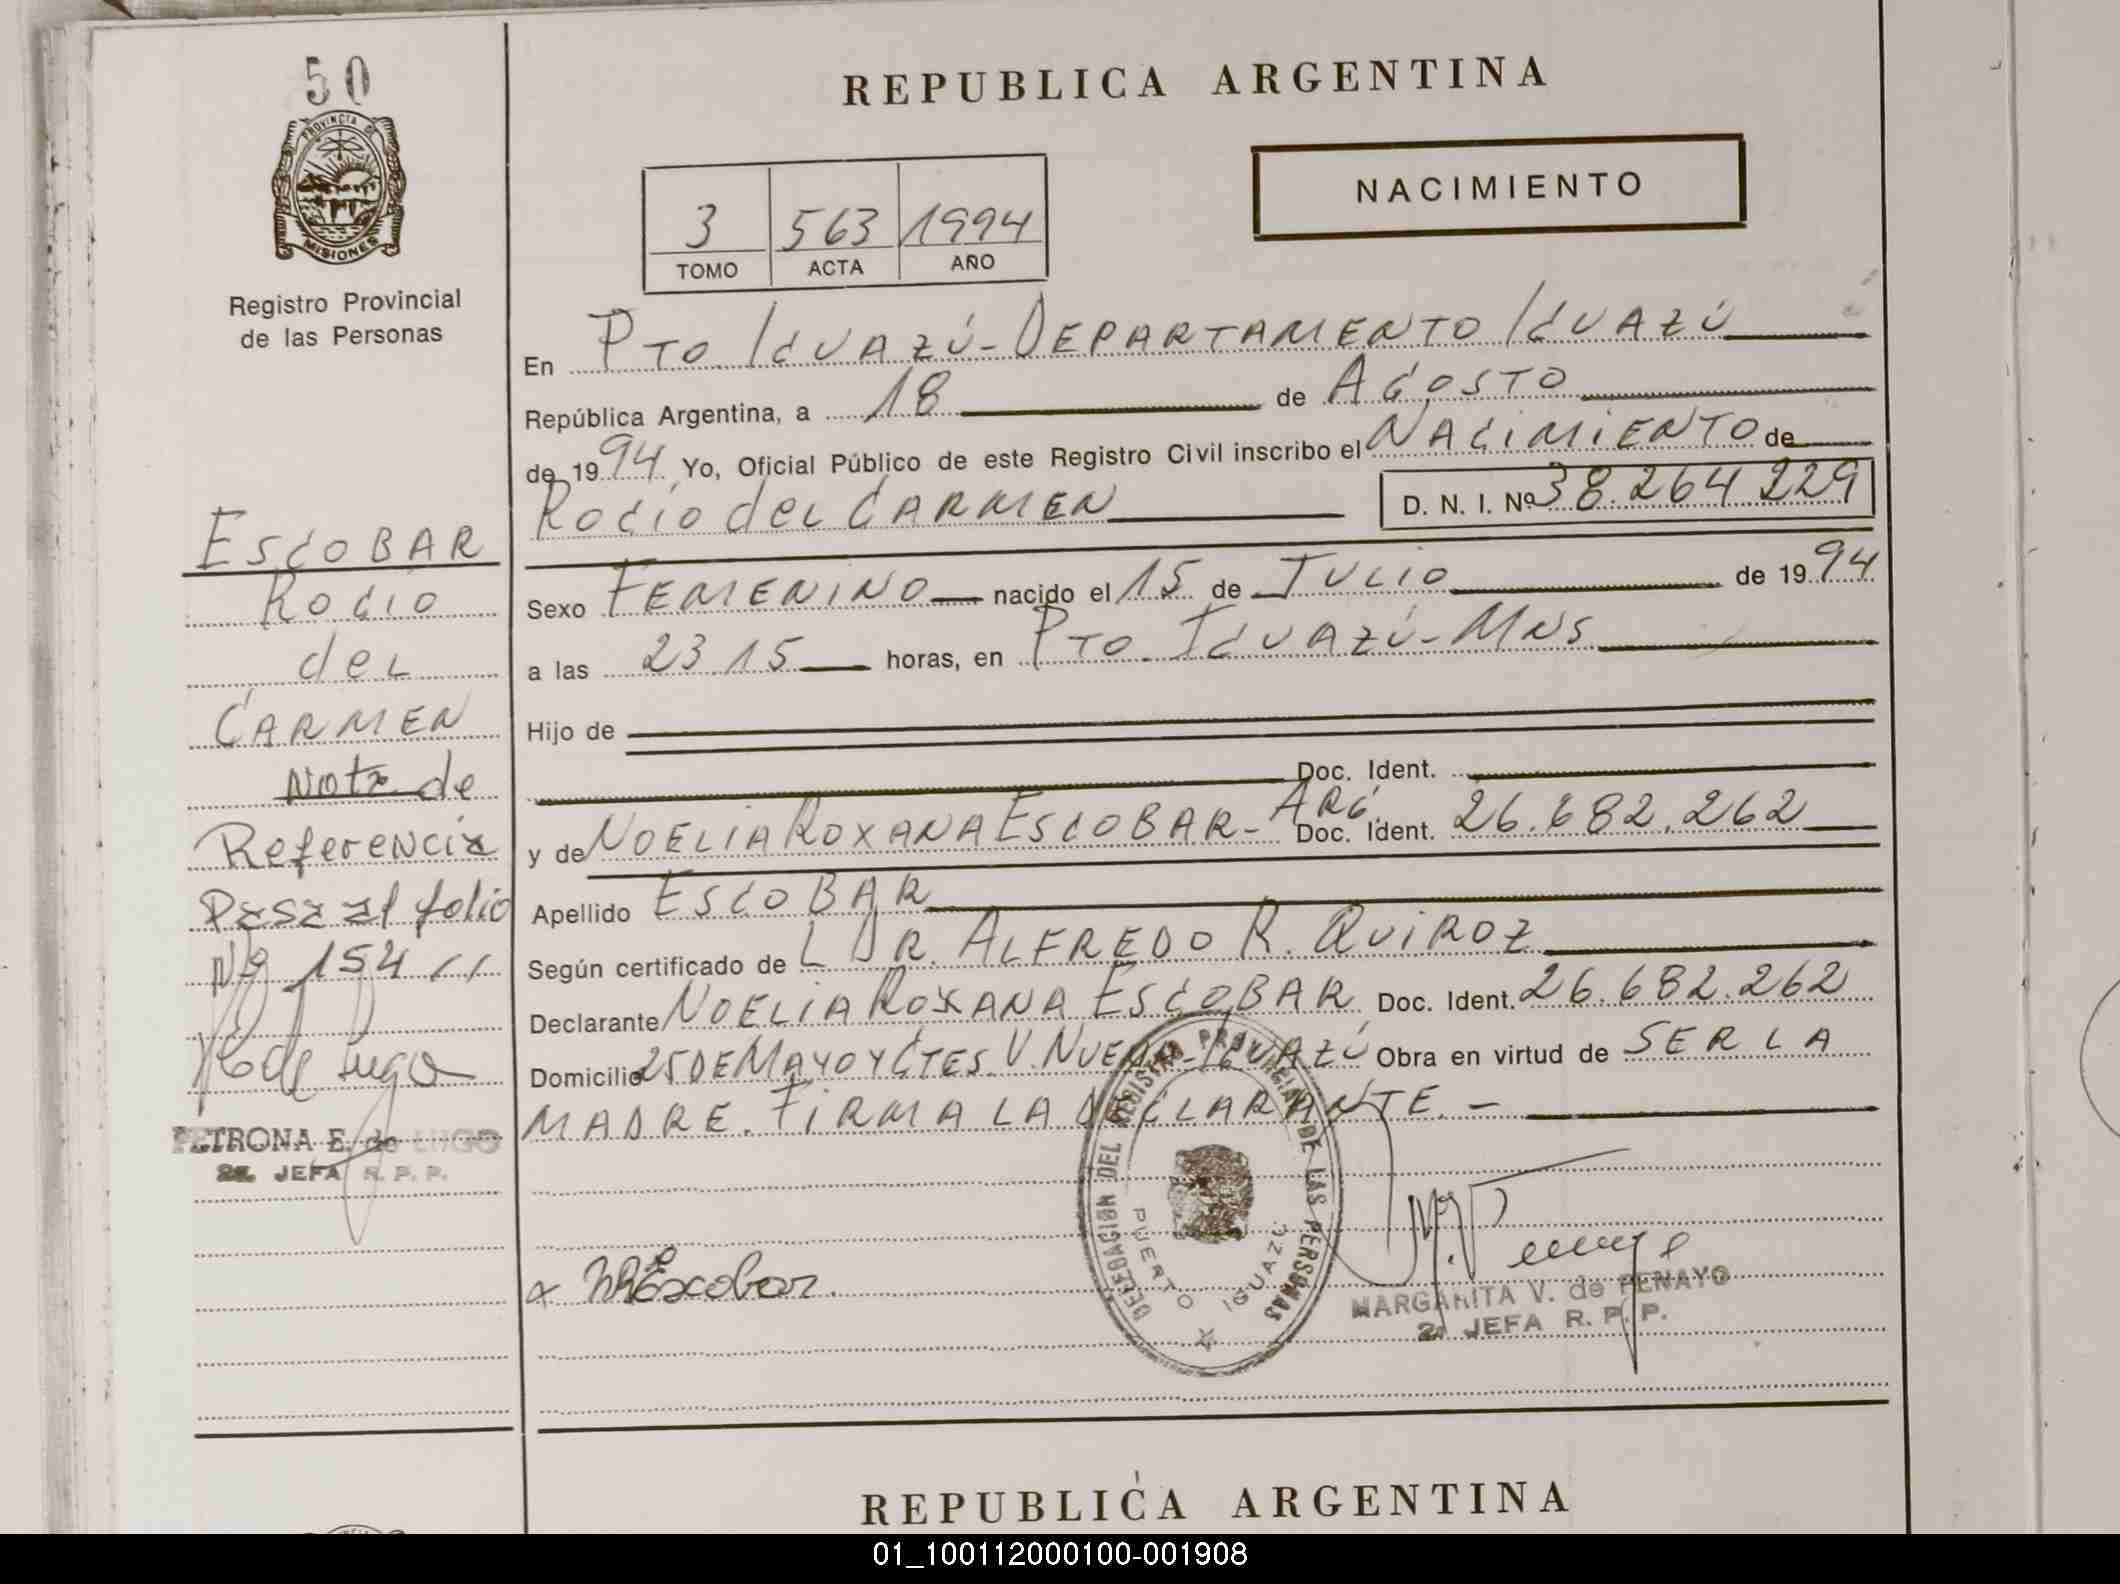 50
PROVINCIA DE
MISIONES
Registro Provincial
de las Personas
REPUBLICA ARGENTINA
NACIMIENTO
3 563 1994
TOMO ACTA AÑO
En Pto. Iguazú - Departamento Iguazú
República Argentina, a 18 de Agosto
de 1994 Yo, Oficial Público de este Registro Civil inscribo el Nacimiento de
Rocio del Carmen D. N. I. Nº 38.264.229
Sexo Femenino nacido el 15 de Julio de 1994
a las 23.15 horas, en Pto. Iguazú - Mns.
Hijo de
Doc. Ident.
y de Noelia Roxana Escobar - Arg. Doc. Ident. 26.682.262
Apellido Escobar
Según certificado de L Dr. Alfredo R. Quiroz
Declarante Noelia Roxana Escobar Doc. Ident. 26.682.262
Domicilio 25 de Mayo y Ctes. V. Nueva - Iguazú Obra en virtud de ser la
madre. Firma la declarante. -
Escobar
Rocio
del
Carmen
Nota de
Referencia
Pasa al folio
Nº 154 //
PETRONA E. de LUGO
2a. JEFA R. P. P.
x NREscobar
DELEGACION DEL REGISTRO PROVINCIAL DE LAS PERSONAS
PUERTO IGUAZU
MARGARITA V. de PENAYO
2a JEFA R. P. P.
REPUBLICA ARGENTINA
01_100112000100-001908